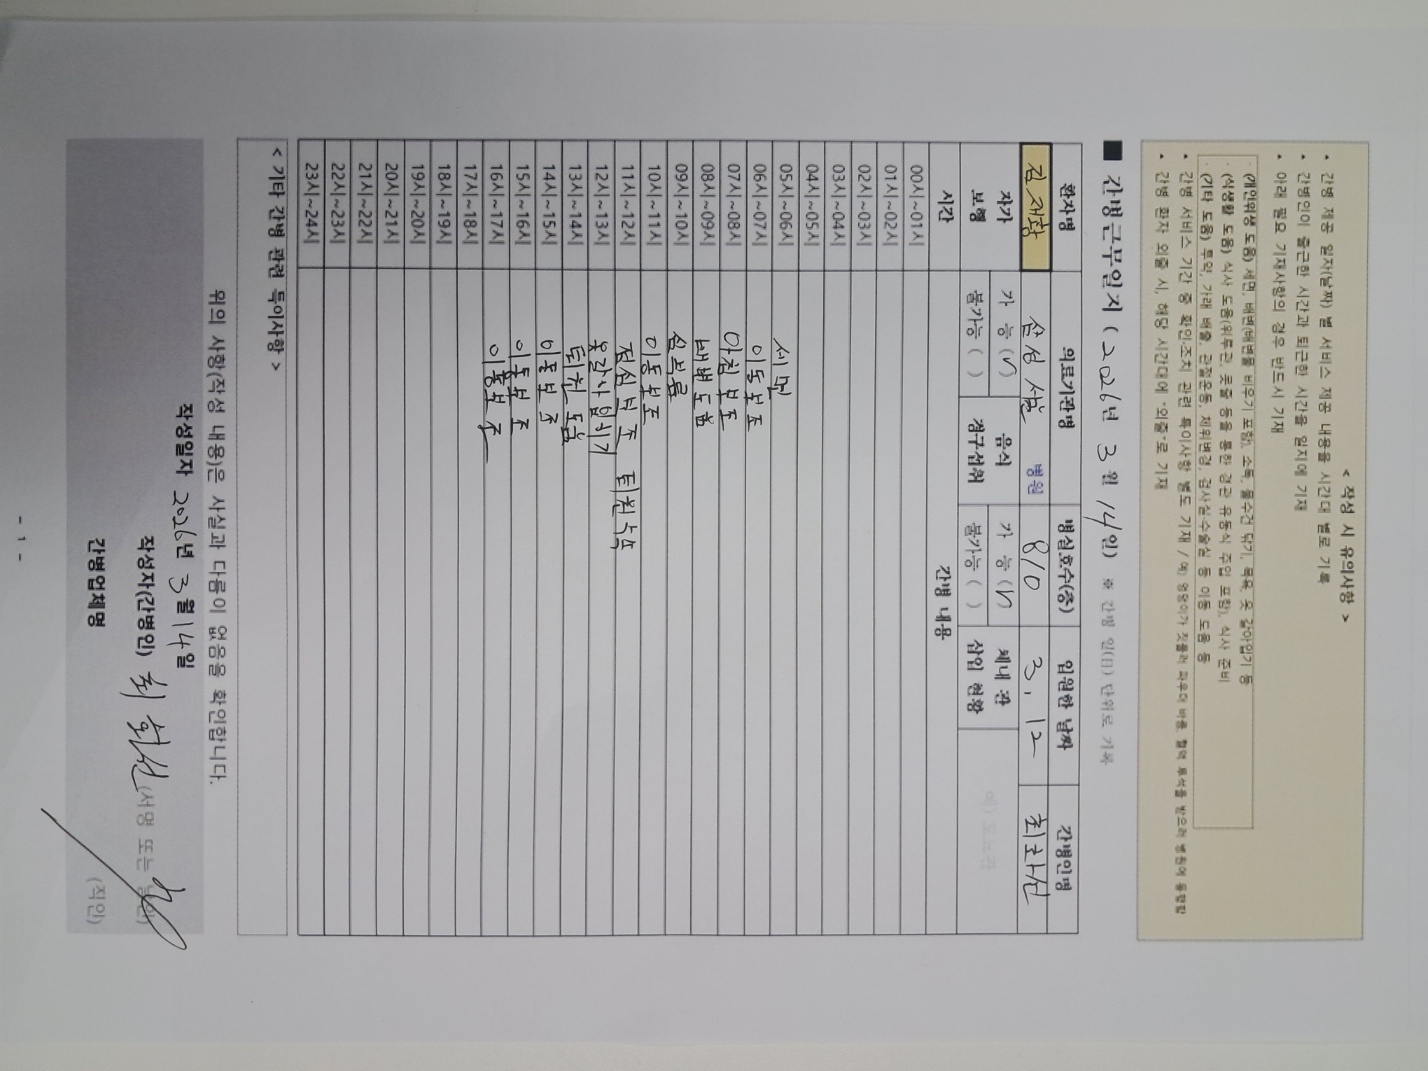 < 작성 시 유의사항 >
• 간병 제공 일자(날짜) 별 서비스 제공 내용을 시간대 별로 기록
• 간병인이 출근한 시간과 퇴근한 시간을 일지에 기재
• 아래 필요 기재사항의 경우 반드시 기재
(개인위생 도움) 세면, 배변(배변물 비우기 포함), 소독, 물수건 닦기, 목욕, 옷 갈아입기 등
(식생활 도움) 식사 도움(위루관, 콧줄 등을 통한 경관 유동식 주입 포함), 식사 준비
(기타 도움) 투약, 가래 배출, 관절운동, 체위변경, 검사실·수술실 등 이동 도움 등
• 간병 서비스 기간 중 확인·조치 관련 특이사항 별도 기재 / 예) 엉덩이가 짓물러 파우더 바름, 혈액 투석을 받으러 병원에 동행함
• 간병 환자 외출 시, 해당 시간대에 "외출"로 기재
■ 간병근무일지 ( 2026년 3월 14일) ※ 간병 일(日) 단위로 기록
환자명 의료기관명 병실호수(층) 입원한 날짜 간병인명
김재광 삼성 병원 810 3, 12 최화선
자가 보행 가 능 (V) 불가능 ( ) 음식 경구섭취 가 능 (V) 불가능 ( ) 체내 관 삽입 현황
시간 간병 내용
00시~01시
01시~02시
02시~03시
03시~04시
04시~05시
05시~06시 세면
06시~07시 이동보조
07시~08시 아침 보조
08시~09시 배변도움
09시~10시 심부름
10시~11시 이동보조
11시~12시 점심보조 퇴원수속
12시~13시 옷갈아입히기
13시~14시 퇴원도움
14시~15시 이동보조
15시~16시 이동보조
16시~17시 이동보조
17시~18시
18시~19시
19시~20시
20시~21시
21시~22시
22시~23시
23시~24시
< 기타 간병 관련 특이사항 >
위의 사항(작성 내용)은 사실과 다름이 없음을 확인합니다.
작성일자 2026년 3월 14일
작성자(간병인) 최화선 (서명 또는 날인)
간병업체명 (직인)
- 1 -